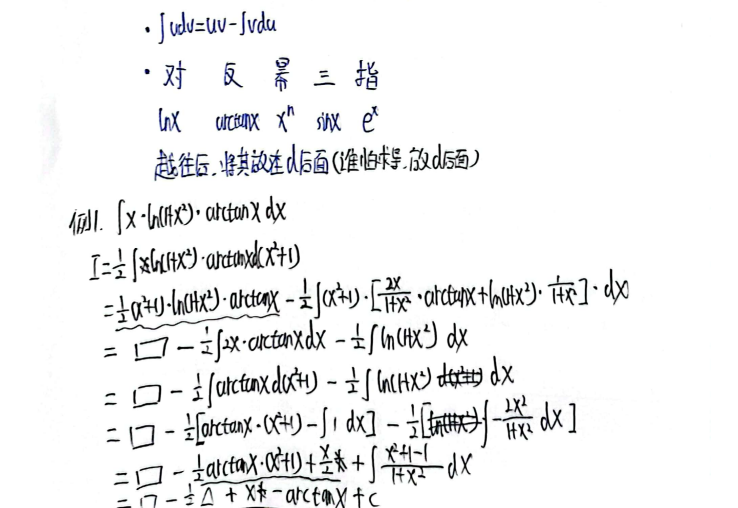 · ∫udv=uv-∫vdu
· 对 反 幂 三 指
lnx arctanx xⁿ sinx eˣ
越往后,将其放在d后面(谁怕求导,放d后面)
例1. ∫x·ln(1+x²)·arctanx dx
I=½∫ln(1+x²)·arctanxd(x²+1)
=½(x²+1)·ln(1+x²)·arctanx - ½∫(x²+1)·[2x/(1+x²)·arctanx+ln(1+x²)·1/(1+x²)]·dx
= □ - ½∫2x·arctanxdx - ½∫ln(1+x²) dx
= □ - ½∫arctanxd(x²+1) - ½∫ln(1+x²) dx
= □ - ½[arctanx·(x²+1)-∫1 dx] - ½[∫-2x²/(1+x²) dx]
= □ - ½arctanx·(x²+1)+x/2 + ∫(x²+1-1)/(1+x²) dx
= □ - ½△ + x - arctanx+c